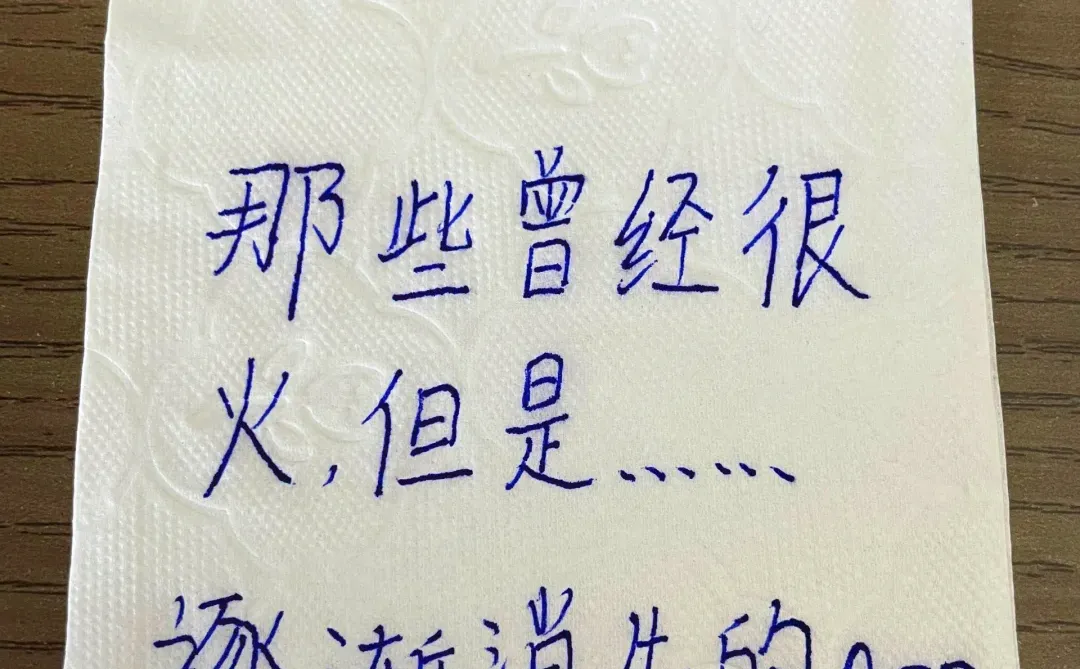 那些曾经很
火,但是......
逐渐消失的App